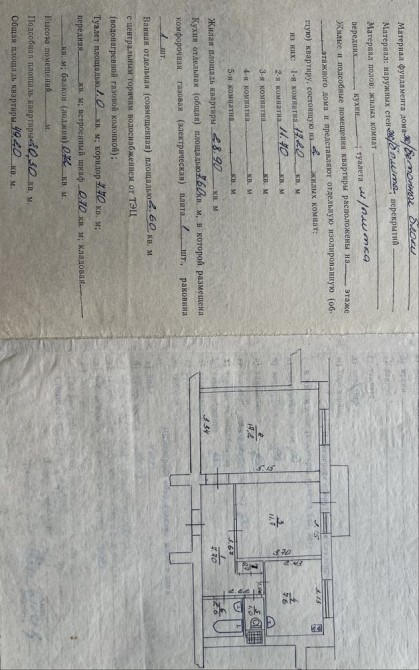 Материал фундамента дома ж/бетон. блоки
Материал: наружных стен ж/б плита, перекрытий
Материал полов: жилых комнат
передних кухни ; туалета м/плитка
Жилые и подсобные помещения квартиры расположены на этаже
этажного дома и представляют отдельную изолированную (об-
щую) квартиру, состоящую из 2 жилых комнат:
из них: 1-я комната 17.20 кв. м
2-я комната 11.70 кв. м
3-я комната кв. м
4-я комната кв. м
5-я комната кв. м
Жилая площадь квартиры 28.90 кв. м
Кухня отдельная (общая) площадью 7.60 кв. м, в которой размещена
комфорочная газовая (электрическая) плита 1 шт., раковина
1 шт.
Ванная отдельная (совмещенная) площадью 2.60 кв. м
с центральным горячим водоснабжением от ТЭЦ
(водонагревной газовой колонкой);
Туалет площадью 1.0 кв. м; коридор 7.70 кв. м;
передняя кв. м; встроенный шкаф 0.70 кв. м; кладовая
кв. м; балкон (лоджия) кв. м
Высота помещений м
Подсобная площадь квартиры кв. м
Общая площадь квартиры кв. м.
3.34
2
17.2
5.15
3
11.7
3.15
3.70
1
7.70
1.67
2.43
4
7.6
3.13
5
1.0
6
2.6